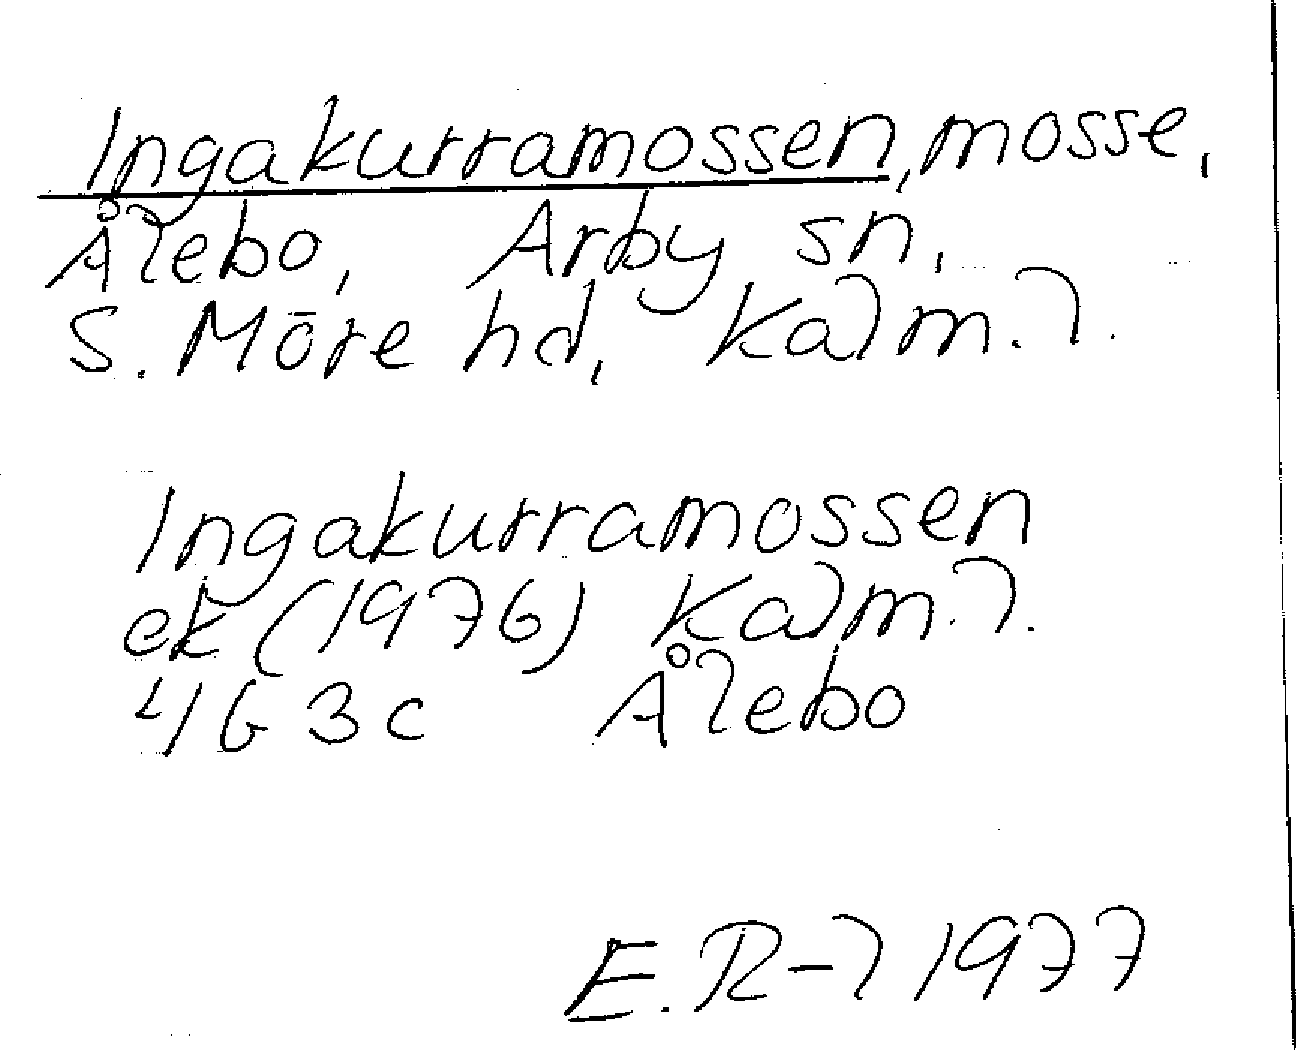 Ingakurramossen, mosse,
Ålebo, Arby sn,
S. Möre hd, Kalm. l.
Ingakurramossen
ek (1976) Kalm. l.
4G 3c Ålebo
E. R-l 1977